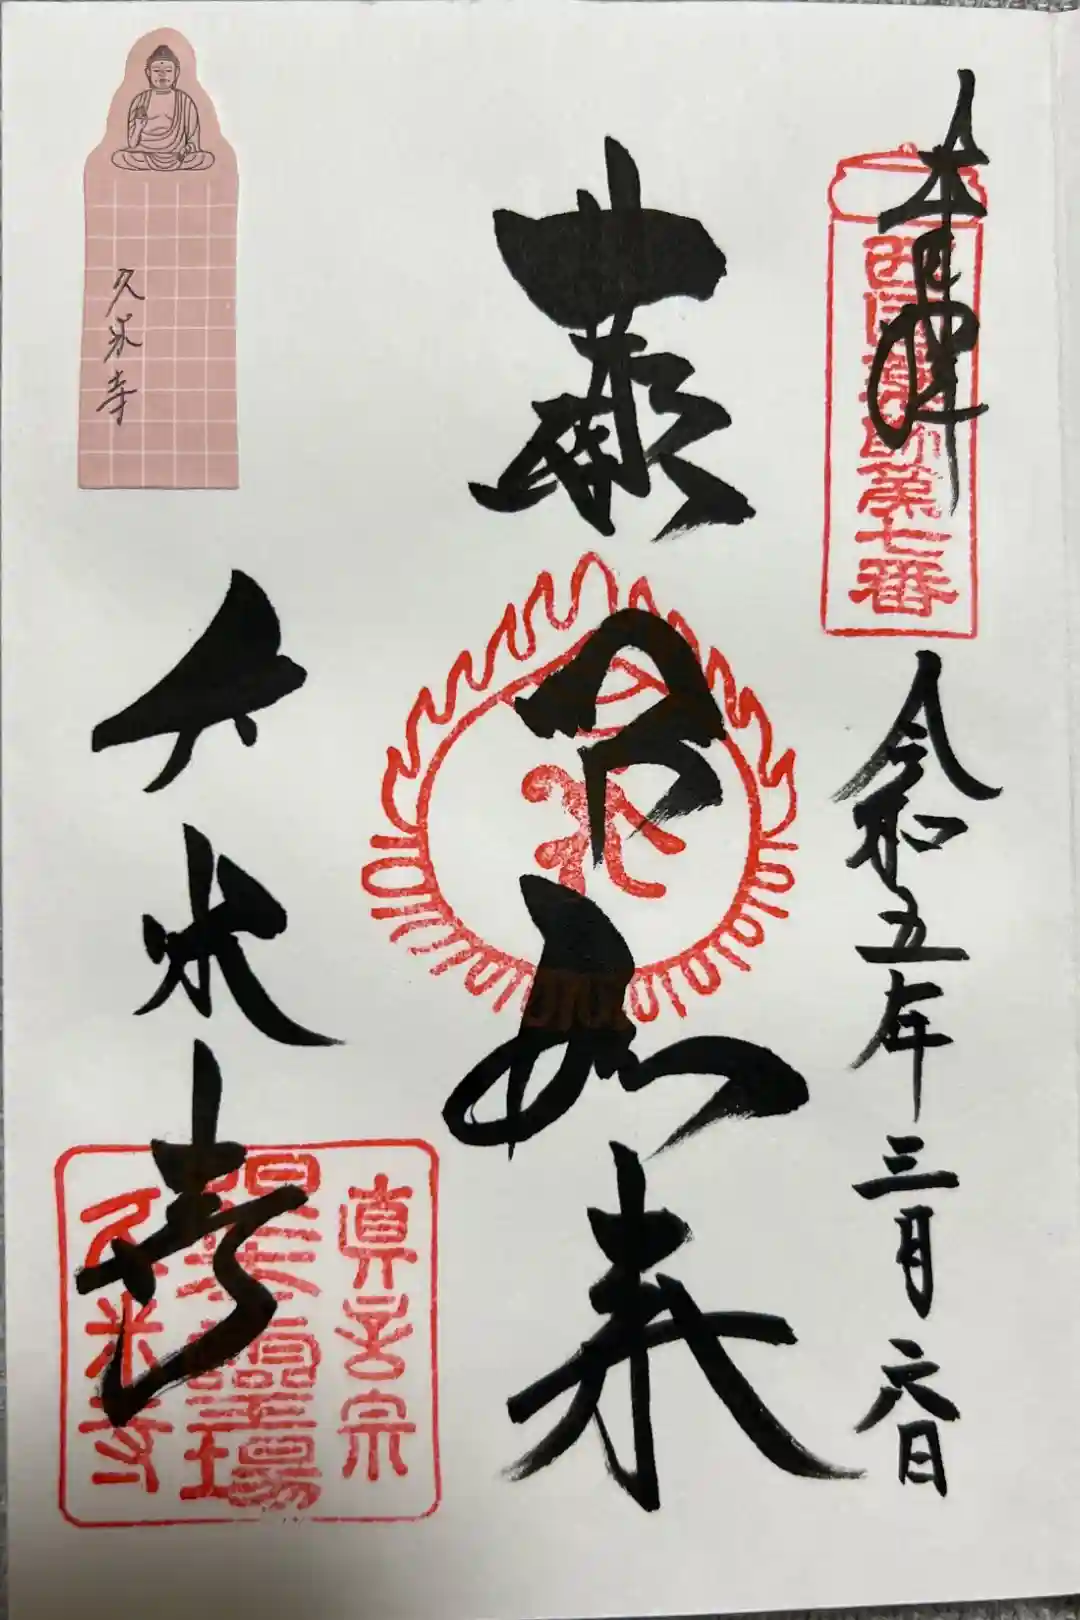 奉拝
西国薬師第七番
令和五年三月六日
薬師如来
久米寺
真言宗
最大霊場
久米寺
久米寺